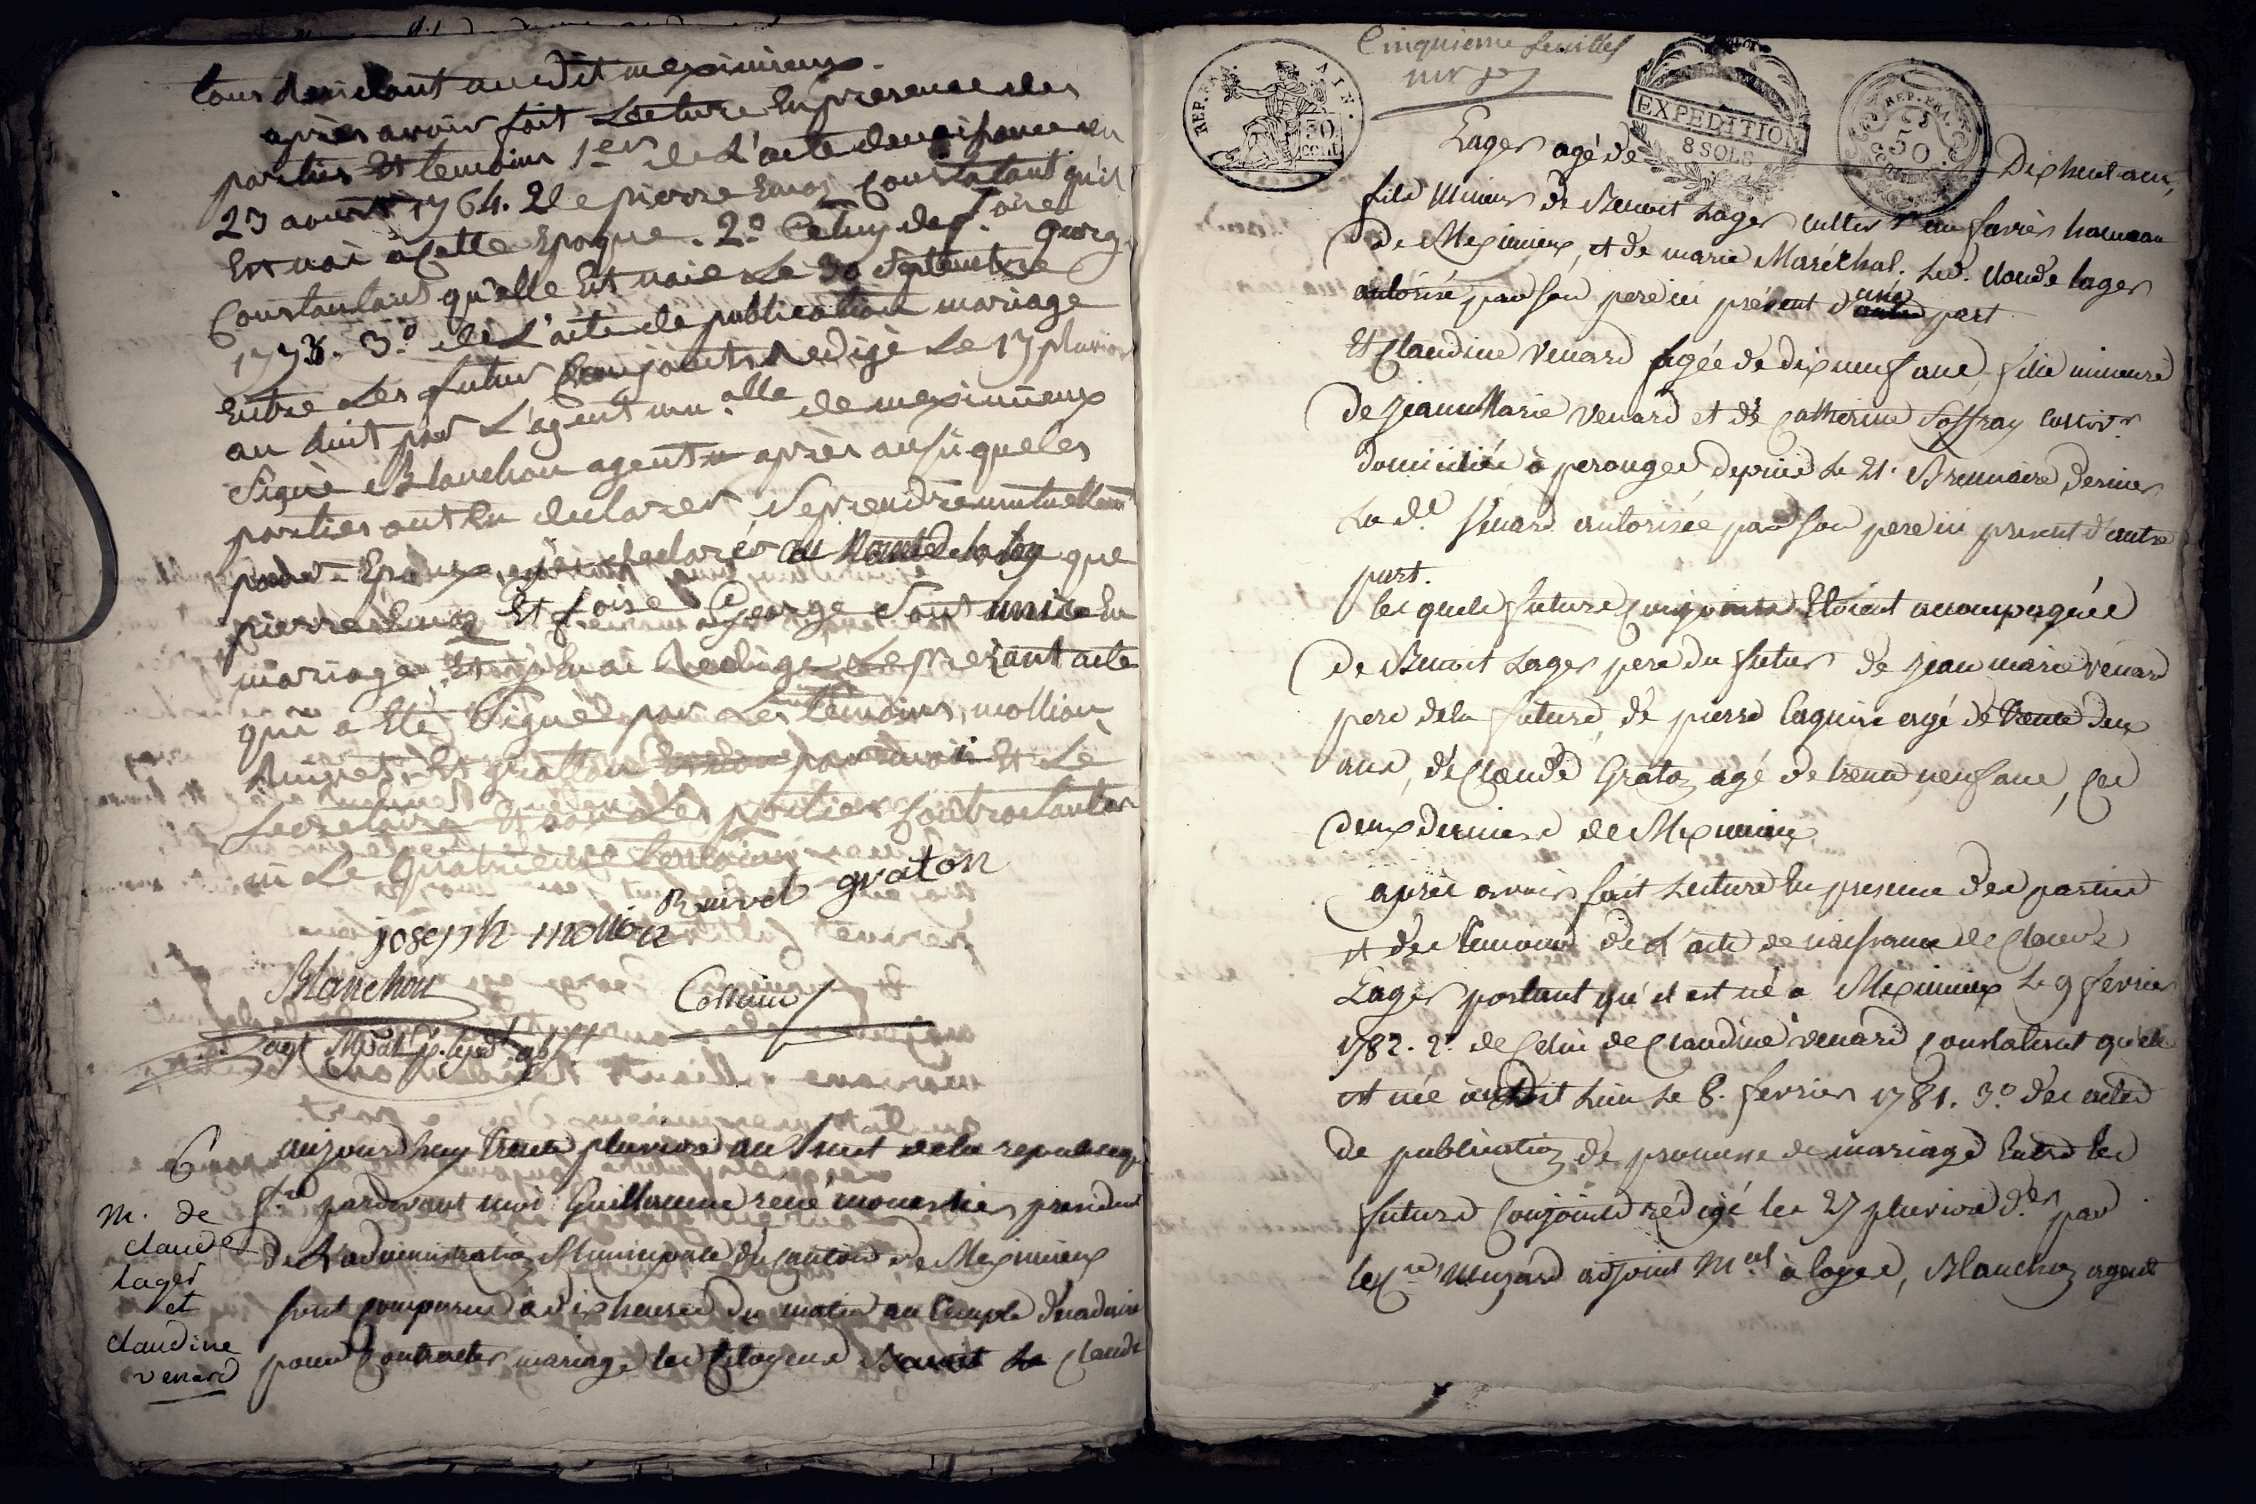 tous demeurant audit meximieux.
après avoir fait Lecture En presence des
parties Et temoins 1er de L'acte de naissance du
23 aoust 1764. de pierre Constatant qu'il
Est nai a Cette Epoque. 2.o Celuy de f.oise George
Constantant qu'elle Est naie Le 30 Septembre
1773. 3.o de L'acte de publication mariage
Entre Les futur Conjoints Redigé Le 17 pluviose
an huit par L'agent mu.alle de meximieux
Signé Blanchon agent après aussi que les
parties ont Eu declarer Se prendre mutuellement
pour Epoux, j'ai declarer au Nom de la loy que
pierre Et foise George Sont unie En
mariage, Et j'en ai Redigé Le prezant acte
qui a Eté Signé par Les temoins, mollion,
Ruivet, Et gratton par moi Et Le
Secretaire Et non Les parties Contractantes
ni Le Quatrieme temoin
Ruivet graton
joseph mollion
Blanchon
Collain
agt Mpal
6 aujourdhuy trente pluviose an huit de la republique
f.se pardevant moi Guillaume rené monestier president
de L'administration Municipale du canton de Meximieux
sont comparus à dix heures du matin au temple décadaire
pour Contracter mariage les Citoyens Benoit La Claude
m. de
claude
Lager
et
claudine
venard
Cinquieme feuillet
REP. FRA. AIN.
50
CENT.
EXPEDITION
8 SOLS
REP. FRA.
50
CENTIMES
Lager agé de Dix huit ans,
fils Mineur de Benoit Lager cultivr au hameau
de Meximieux, et de marie Maréchal. Led. Claude lager
autorisé par son pere ici présent d'autre une part
Et Claudine Venard agée de dix neuf ans, fille mineure
de Jean Marie Venard et de Catherine Soffray cultivr
domiciliée à perouges depuis Le 21. Brumaire dernier
La de. Venard autorisée par son pere ici present d'autre
part.
lesquels futurs conjoints Etoient accompagnés
de Benoit Lager pere du futur de jean marie venard
pere dela future, de pierre agé de trente deux
ans, de Claude Graton agé de trente neuf ans, Ces
deux derniers de Meximieux
après avoir fait Lecture En presence des parties
et des temoins de L'acte de naissance de Claude
Lager portant qu'il est né a Meximieux Le 9 fevrier
1782. 2.o de Celui de Claudine venard constatant qu'elle
est née audit Lieu Le 8. fevrier 1781. 3.o des actes
de publication de promesse de mariage Entre les
futurs Conjoints rédigé les 27 pluviose d.er par
le Cen Muzard adjoint M.al à loyes, Blanchon agent